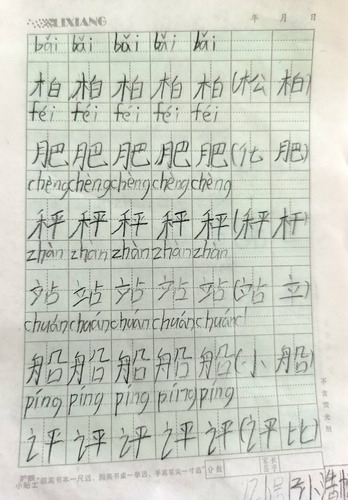 LIXIANG 年 月 日
bǎi bǎi bǎi bǎi bǎi
柏 柏 柏 柏 柏 (松 柏)
féi féi féi féi féi
肥 肥 肥 肥 肥 (化 肥)
chèng chèng chèng chèng chèng
秤 秤 秤 秤 秤 (秤 杆)
zhàn zhàn zhàn zhàn zhàn
站 站 站 站 站 (站 立)
chuán chuán chuán chuán chuán
船 船 船 船 船 (小 船)
píng píng píng píng píng
评 评 评 评 评 (评 比)
小贴士 "眼离书本一尺远，胸离书桌一拳远，手离笔尖一寸远" 分数